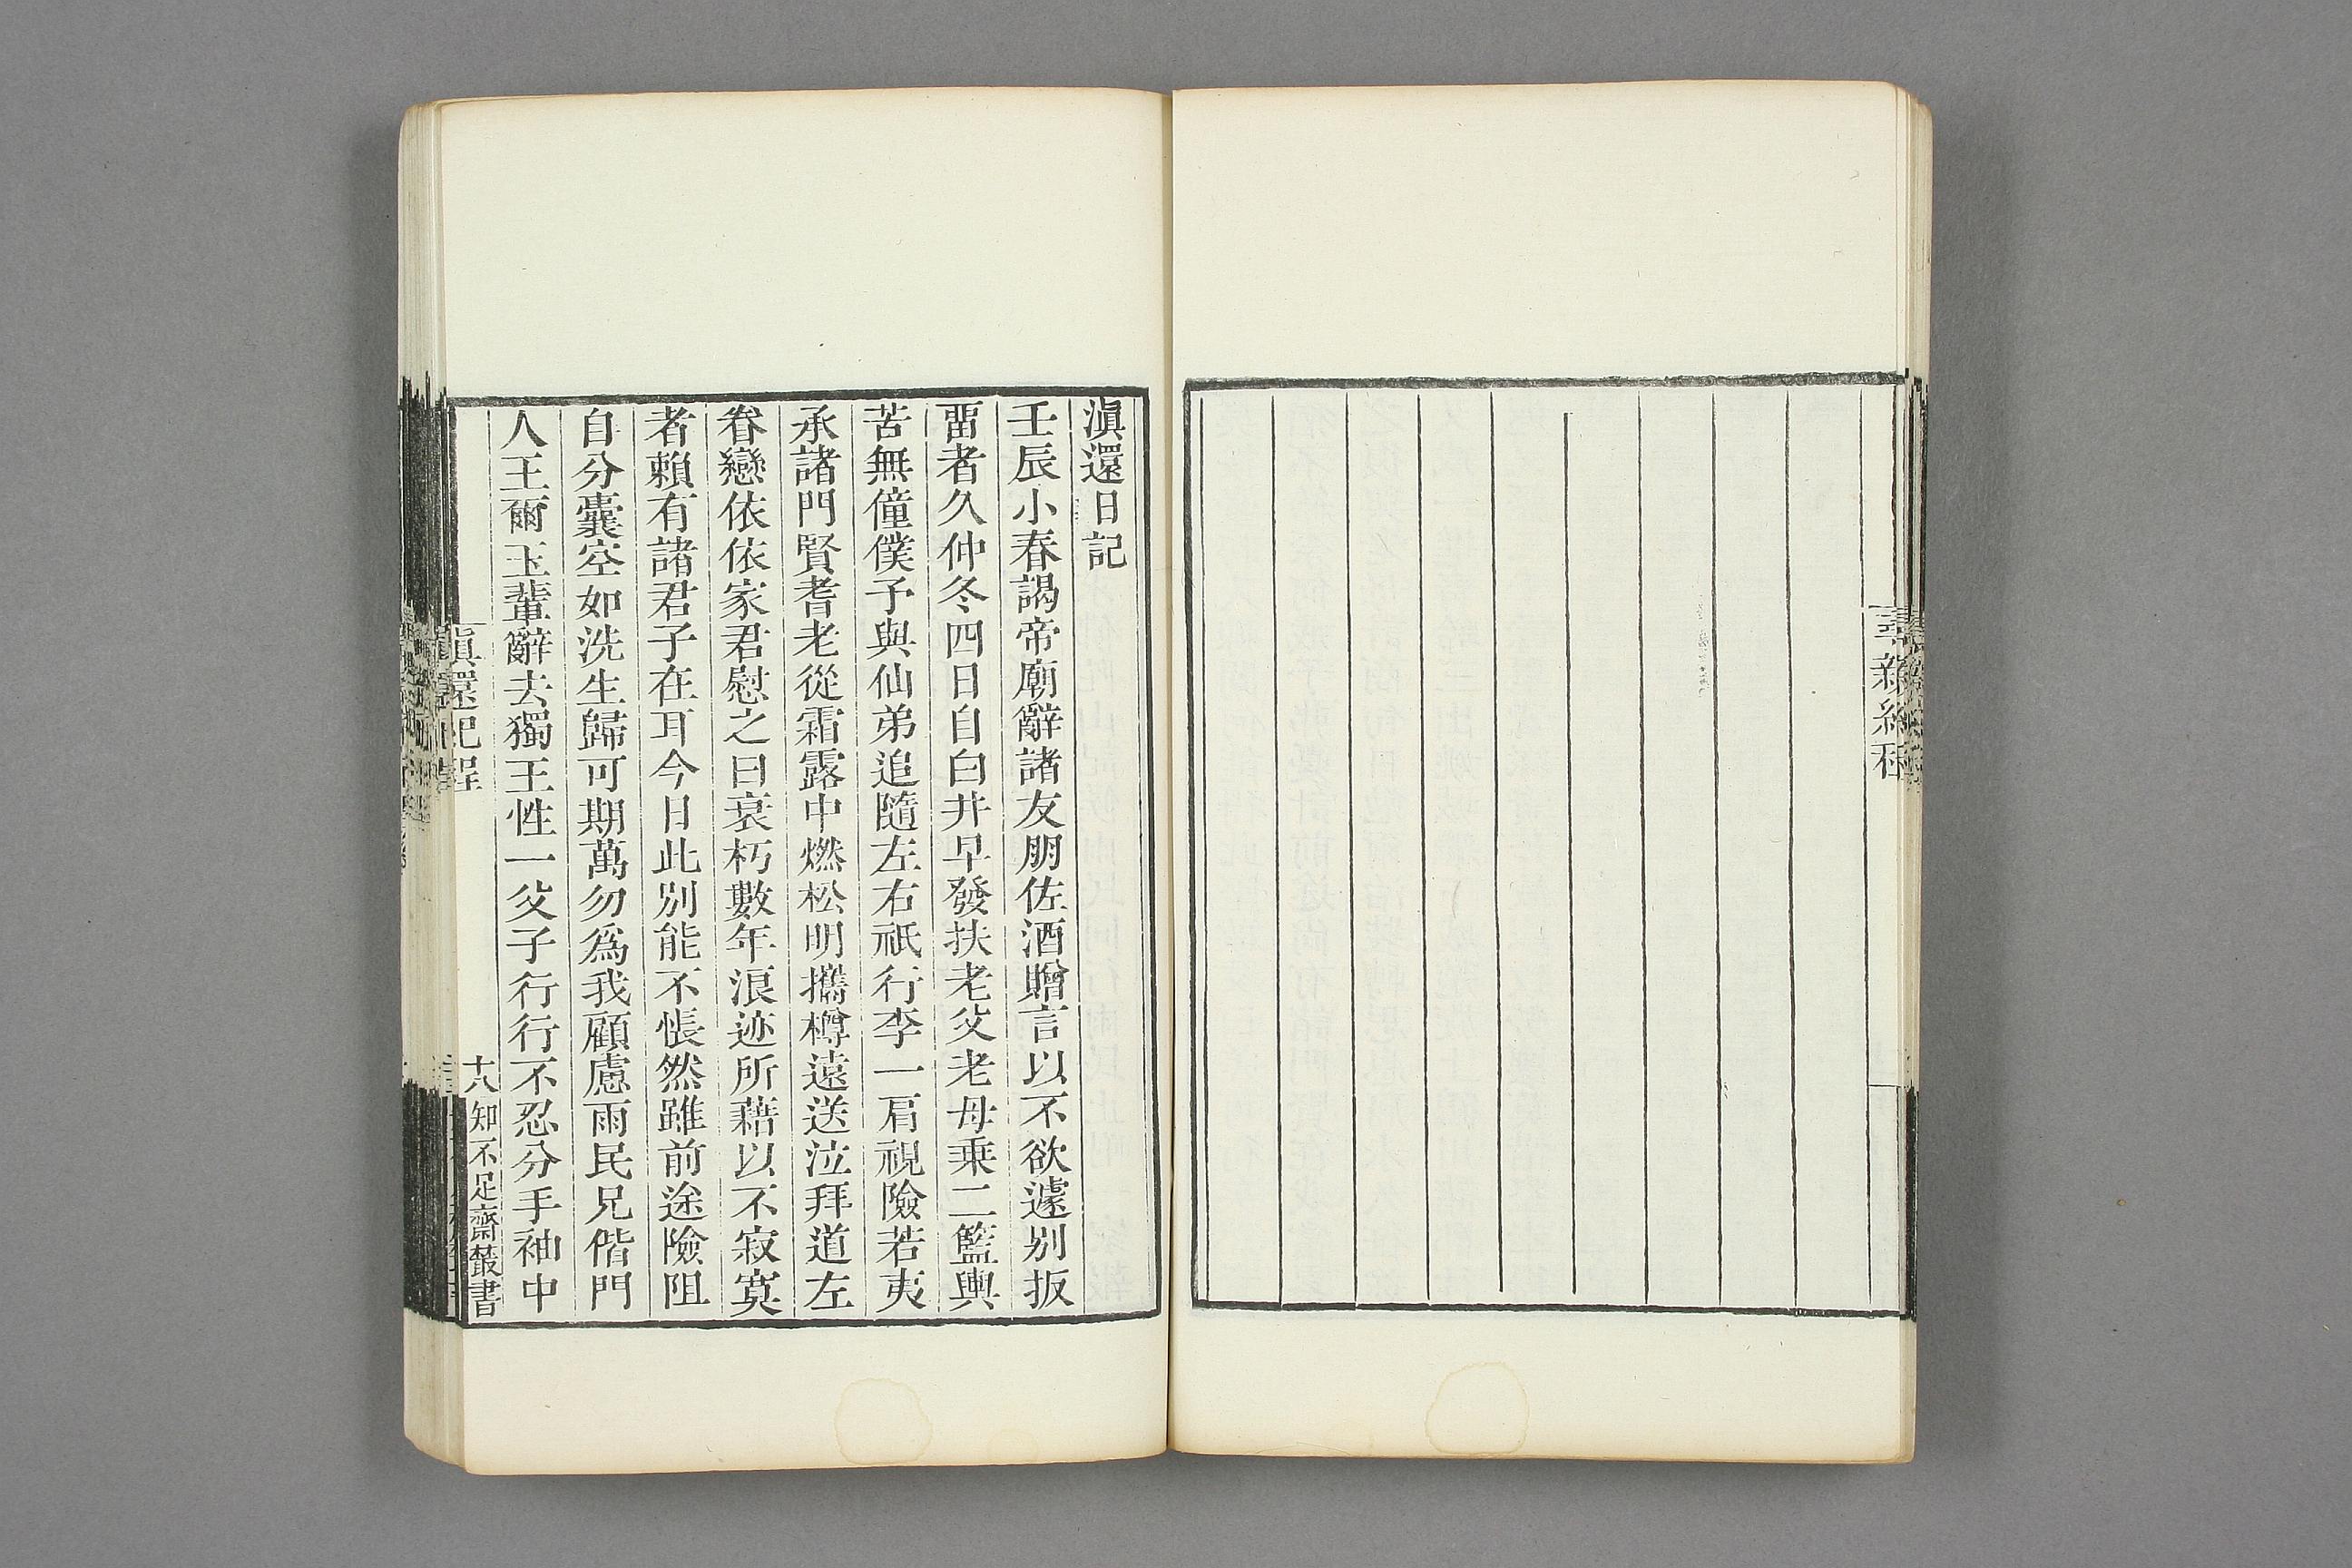 尋親紀程
滇還日記
壬辰小春謁帝廟辭諸友朋佐酒贈言以不欲遽別扳
畱者久仲冬四日自白井早發扶老父老母乘二籃輿
苦無僮僕予與仙弟追隨左右祇行李一肩視險若夷
承諸門賢耆老從霜露中燃松明攜樽遠送泣拜道左
眷戀依依家君慰之曰衰朽數年浪迹所藉以不寂寞
者賴有諸君子在耳今日此別能不悵然雖前途險阻
自分囊空如洗生歸可期萬勿爲我顧慮雨民兄偕門
人王爾玉輩辭去獨王性一父子行行不忍分手袖中
滇還紀程
十八
知不足齋叢書